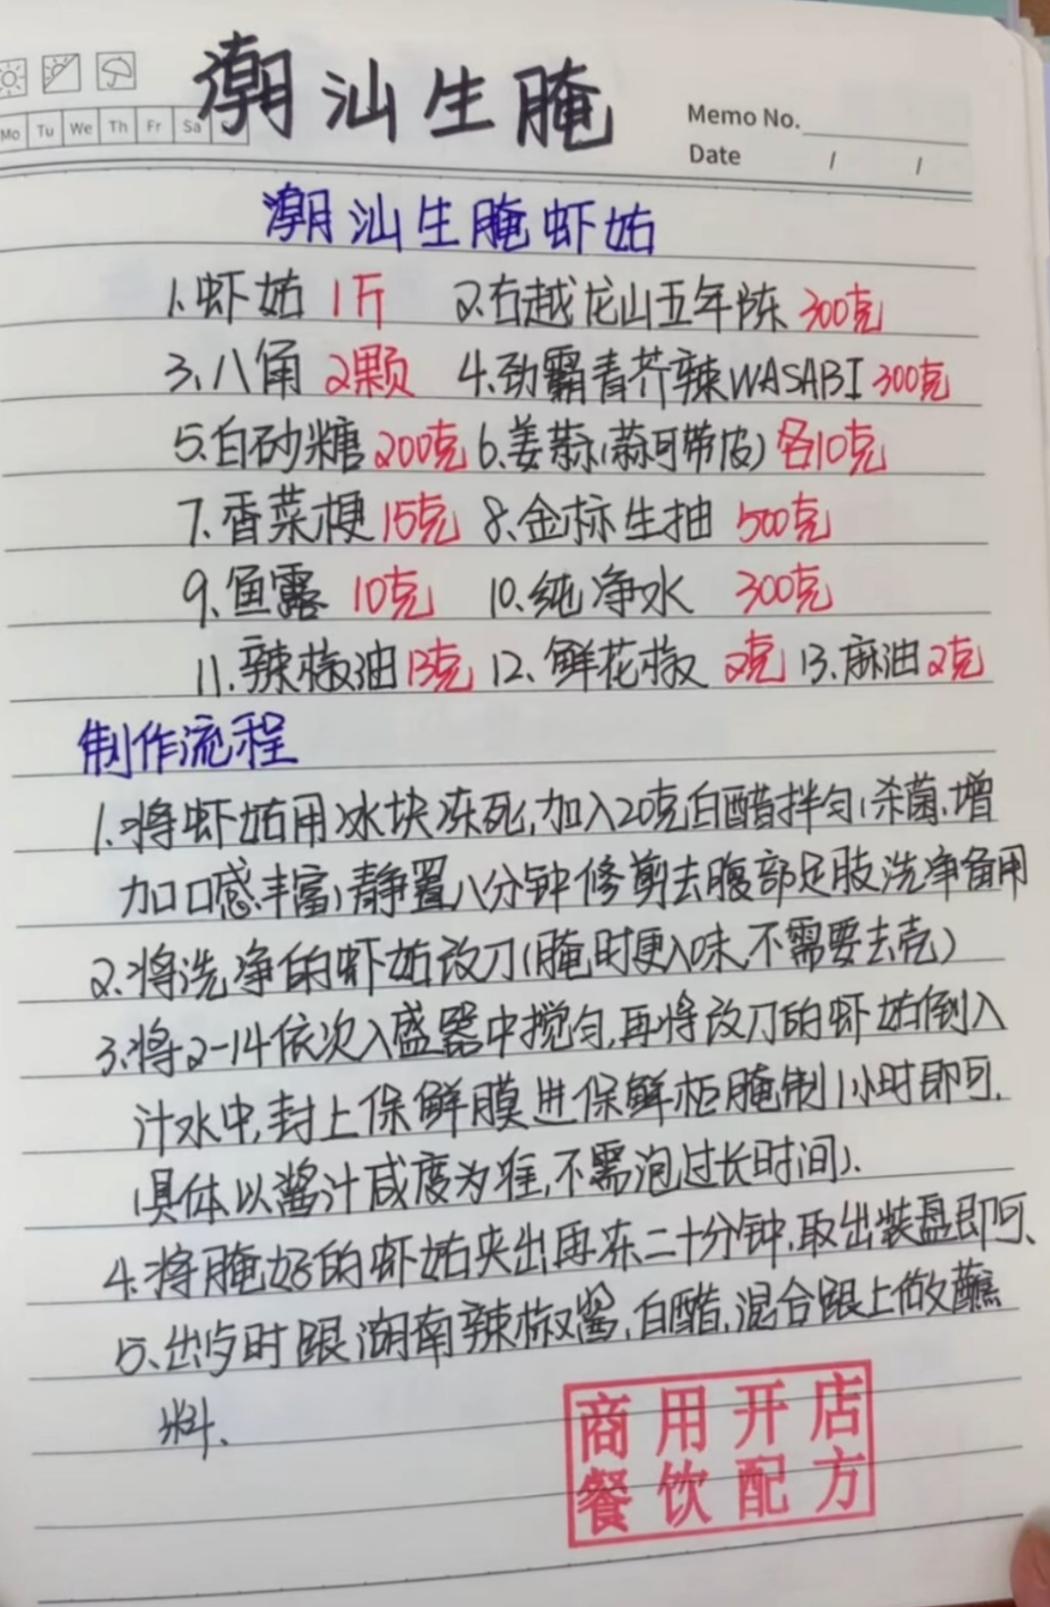 潮汕生腌
Mo Tu We Th Fr Sa
Memo No.
Date / /
潮汕生腌虾姑
1、虾姑 1斤 2、右越龙山五年陈 300克
3、八角 2颗 4、劲霸青芥辣WASABI 300克
5、白砂糖 200克 6、姜蒜(蒜可带皮) 各10克
7、香菜梗 15克 8、金标生抽 500克
9、鱼露 10克 10、纯净水 300克
11、辣椒油 13克 12、鲜花椒 2克 13、麻油 2克
制作流程
1、将虾姑用冰块冻死,加入20克白醋拌匀(杀菌、增
加口感丰富)静置八分钟修剪去腹部足肢洗净备用
2、将洗净的虾姑改刀(腌时更入味,不需要去壳)
3、将2-14依次入盛器中搅匀,再将改刀的虾姑倒入
汁水中,封上保鲜膜进保鲜柜腌制1小时即可.
(具体以酱汁咸度为准,不需泡过长时间).
4、将腌好的虾姑夹出再冻二十分钟,取出装盘即可、
5、出与时跟湖南辣椒酱,白醋,混合跟上做蘸
料、
商用开店
餐饮配方